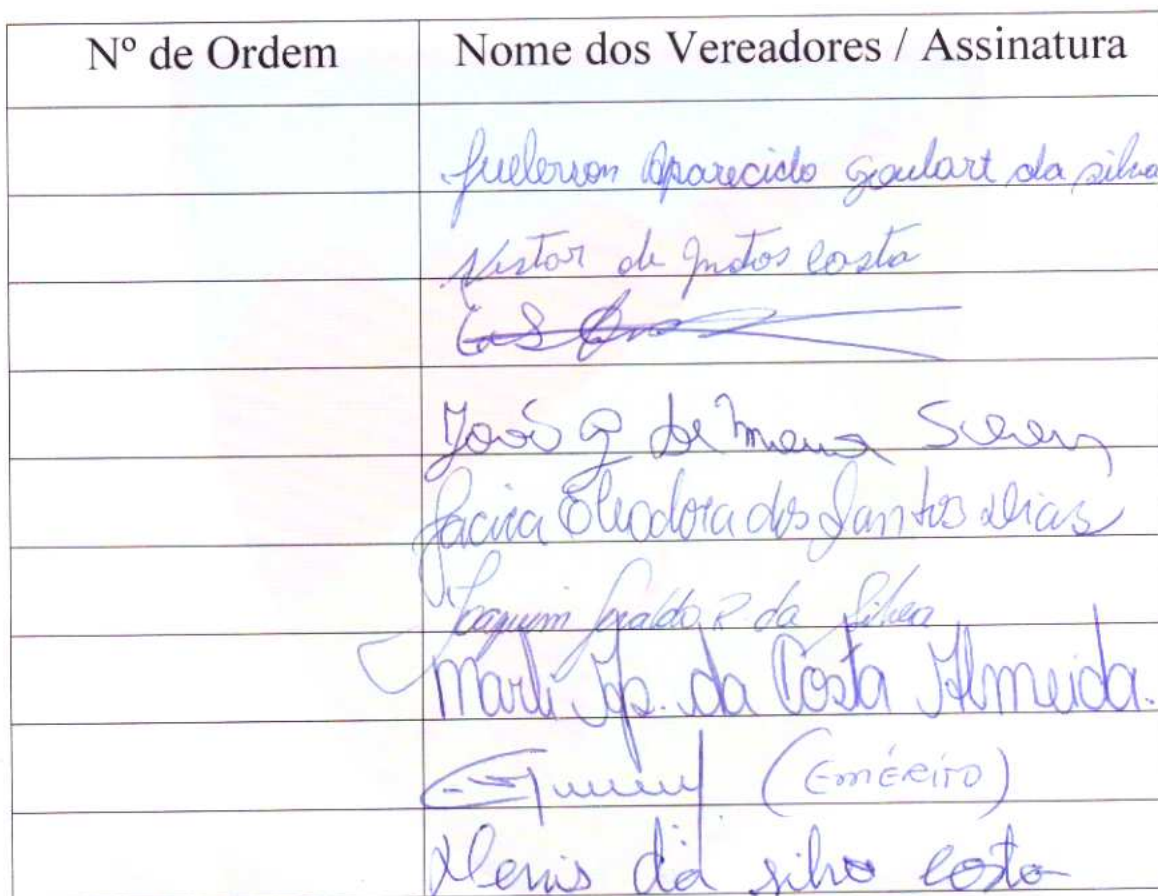 Nº de Ordem
Nome dos Vereadores / Assinatura
Aparecido Goulart da silva
de Matos Costa
João G de Silva
Jacira Eleodora dos Santos Dias
Joaquim Geraldo R da Silva
Marli Ap. da Costa Almeida.
(Emérito)
Denis da silva costa